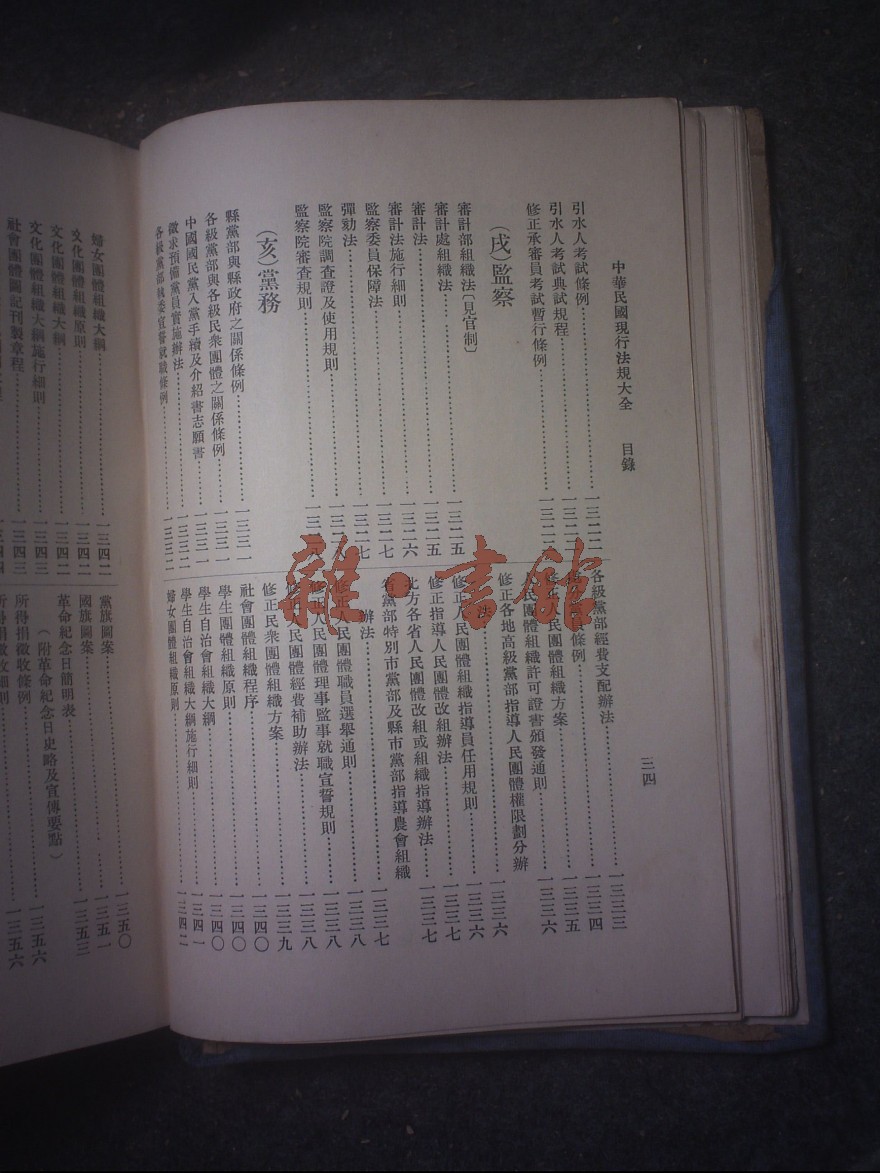 中華民國現行法規大全　目錄
三四
引水人考試條例…………一三二二
引水人考試典試規程…………一三二二
修正承審員考試暫行條例…………一三二二
（戌）監察
審計部組織法〔見官制〕
審計處組織法…………一三二五
審計法…………一三二五
審計法施行細則…………一三二六
監察委員保障法…………一三二七
彈劾法…………一三二七
監察院調查證及使用規則…………一三二八
監察院審查規則…………一三二八
（亥）黨務
縣黨部與縣政府之關係條例…………一三三一
各級黨部與各級民衆團體之關係條例…………一三三一
中國國民黨入黨手續及介紹書志願書…………一三三一
徵求預備黨員實施辦法…………一三三二
各級黨部執委宣誓就職條例…………一三三二
各級黨部經費支配辦法…………一三三三
條例…………一三三四
修正民衆團體組織方案…………一三三五
人民團體組織許可證書頒發通則…………一三三六
修正各地高級黨部指導人民團體權限劃分辦
法…………一三三六
修正人民團體組織指導員任用規則…………一三三六
修正指導人民團體改組辦法…………一三三七
北方各省人民團體改組或組織指導辦法…………一三三七
省黨部特別市黨部及縣市黨部指導農會組織
辦法…………一三三七
修正人民團體職員選舉通則…………一三三八
修正人民團體理事監事就職宣誓規則…………一三三八
修正人民團體經費補助辦法…………一三三八
修正民衆團體組織方案…………一三三九
社會團體組織程序…………一三四〇
學生團體組織原則…………一三四〇
學生自治會組織大綱…………一三四〇
學生自治會組織大綱施行細則…………一三四一
婦女團體組織原則…………一三四二
婦女團體組織大綱…………一三四二
文化團體組織原則…………一三四二
文化團體組織大綱…………一三四二
文化團體組織大綱施行細則…………一三四三
社會團體圖記刊製章程…………一三四四
黨旗圖案…………一三五〇
國旗圖案…………一三五一
革命紀念日簡明表…………一三五三
（附革命紀念日史略及宣傳要點）
所得捐徵收條例…………一三五六
所得捐徵收細則
雜·書館